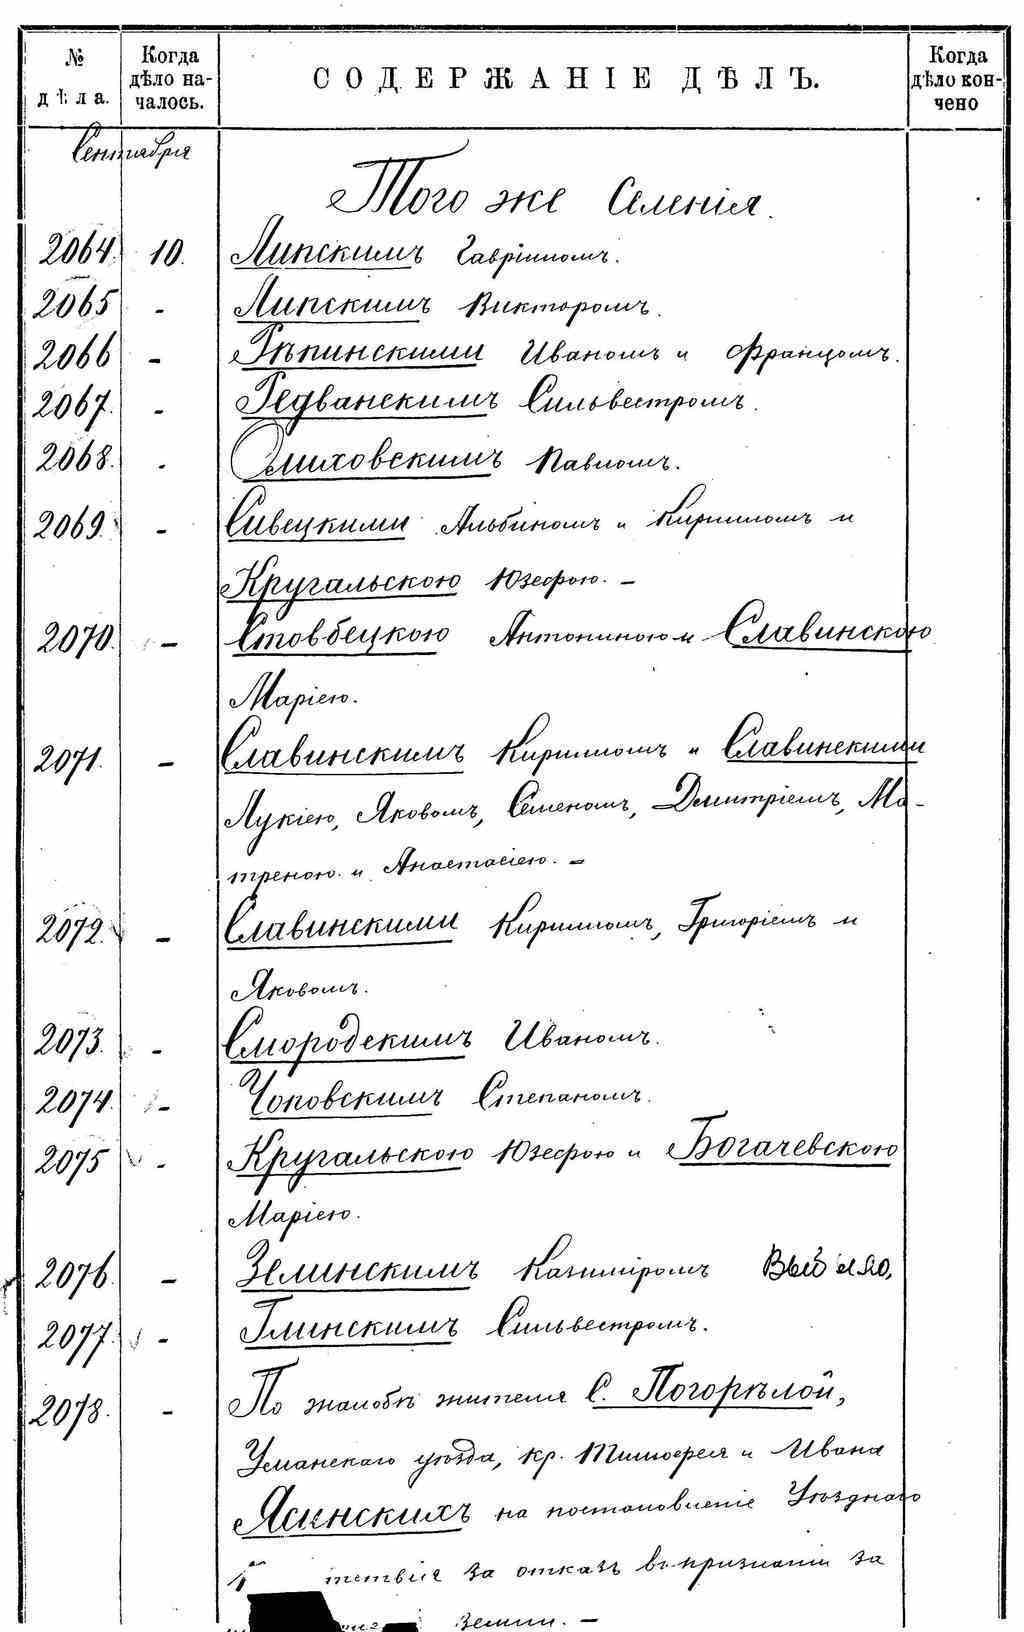 № дѣла. Когда дѣло началось. СОДЕРЖАНІЕ ДѢЛЪ. Когда дѣло кончено
Сентября
Того же Селенія.
2064. 10. Липскимъ Гавріиломъ.
2065 - Липскимъ Викторомъ.
2066 - Рѣпинскими Иваномъ и Францомъ.
2067. - Редванскимъ Сильвестромъ.
2068. - Смиховскимъ Павломъ.
2069. - Сивецкими Альбиномъ и Кирилломъ и
Кругальскою Юзефою. -
2070. - Стовбецкою Антониною и Славинскою
Маріею.
2071. - Славинскимъ Кирилломъ и Славинскими
Лукіею, Яковомъ, Семеномъ, Дмитріемъ, Ма-
треною и Анастасіею. -
2072. - Славинскими Кирилломъ, Григоріемъ и
Яковомъ.
2073. - Смородскимъ Иваномъ.
2074. - Чоповскимъ Степаномъ.
2075 - Кругальскою Юзефою и Богачевскою
Маріею.
2076. - Зелинскимъ Казиміромъ
2077. - Глинскимъ Сильвестромъ.
2078. - По жалобѣ жителя С. Погорѣлой,
Уманскаго уѣзда, кр. Тимофея и Ивана
Ясинскихъ на постановленіе Уѣзднаго
за отказъ въ признаніи за
Земли. -